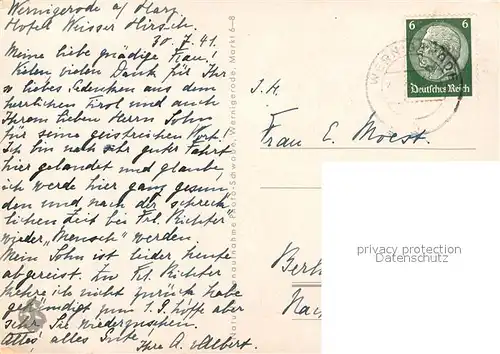 Wernigerode a/Harz
Hotel Weisser Hirsch.
30.7.41.
Meine liebe gnädige Frau,
Vielen vielen Dank für Ihr
so liebes Gedenken aus dem
herrlichen Tirol und auch
Ihrem lieben Herrn Sohn
für seine geistreichen Wort!
Ich bin nach sehr guter Fahrt
hier gelandet und glaube,
ich werde hier ganz gesun-
den und nach der schreck-
lichen Zeit bei Frl. Richter
wieder „Mensch" werden.
Mein Sohn ist leider heute
abgereist. Zu Frl. Richter
kehre ich nicht zurück habe
gekündigt zum 1.9. hoffe aber
sehr Sie wiederzusehen.
Alles alles Gute
Ihre A. Albert.
Markt 6–8
Wernigerode,
Foto-Schwabe,
Naturaufnahme
6 6
Deutsches Reich
WERNIGERODE
Frau E. Moest.
Berl
Nac
privacy protection
Datenschutz